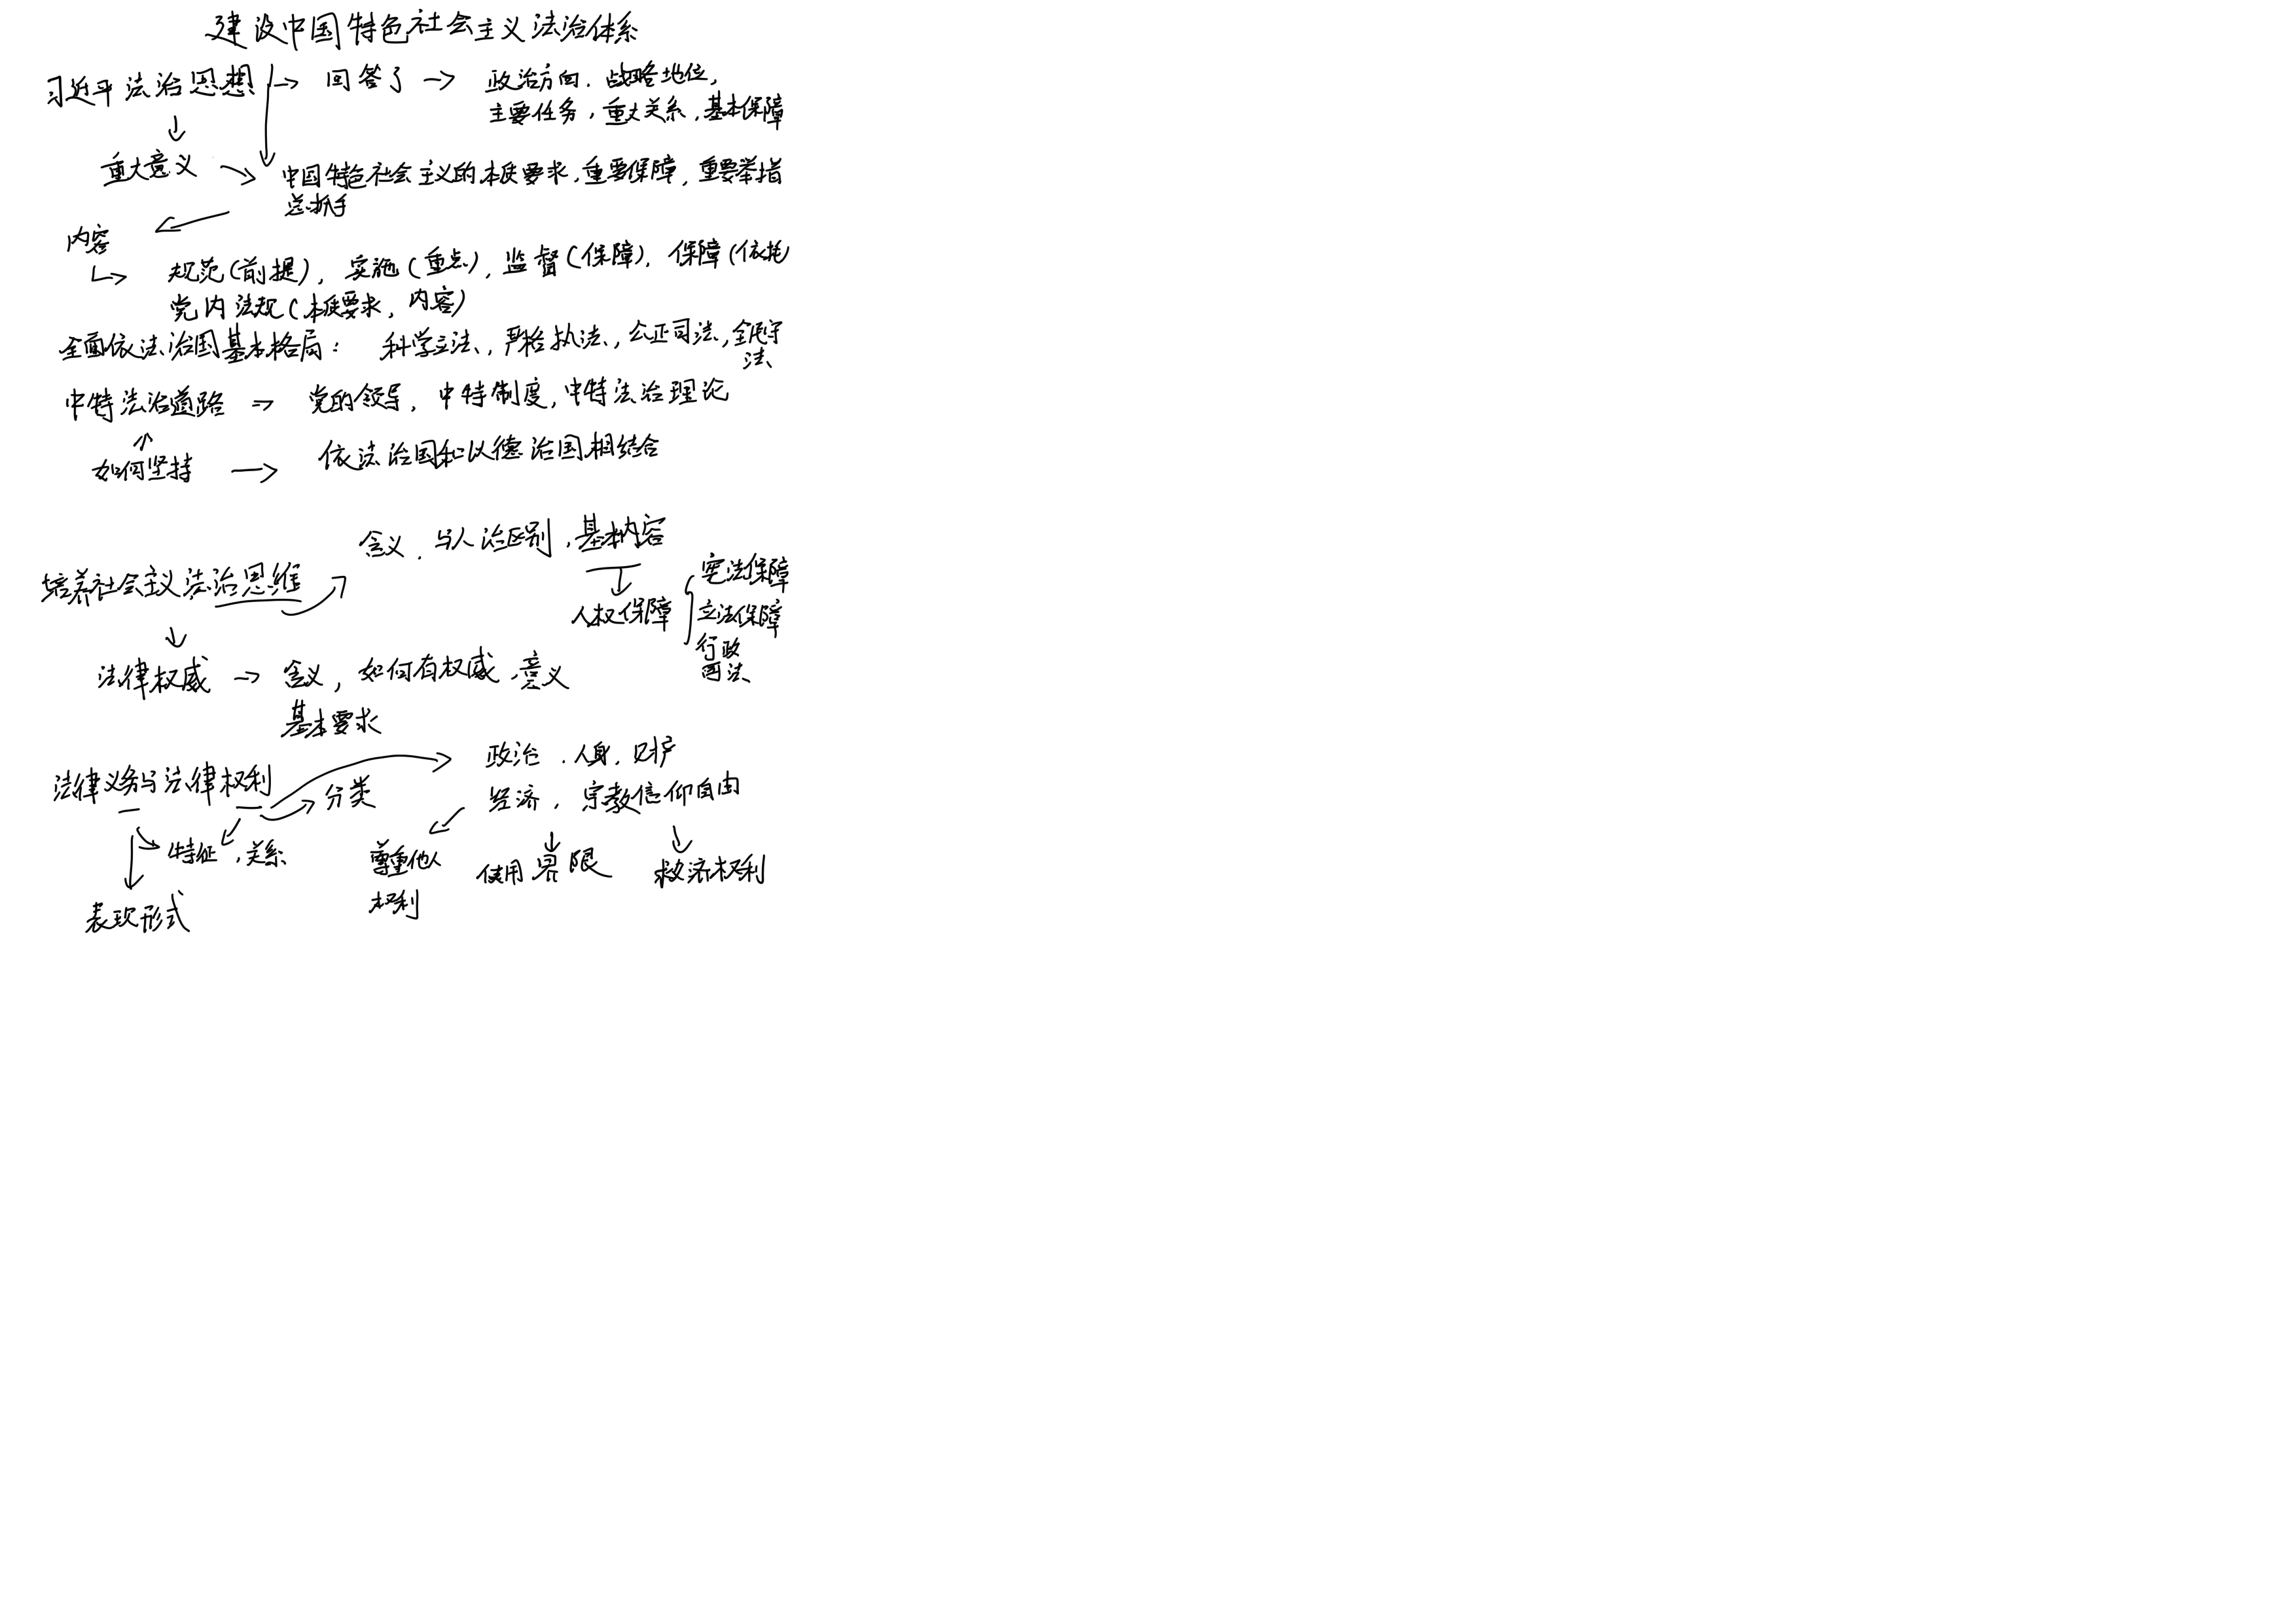 建设中国特色社会主义法治体系
习近平法治思想 → 回答了 → 政治方向、战略地位,
主要任务,重大关系,基本保障
↓
重大意义 → 中国特色社会主义的本质要求,重要保障,重要举措
总抓手
内容 ←
↳ 规范(前提),实施(重点),监督(保障),保障(依托
党内法规(本质要求,内容)
全面依法治国基本格局: 科学立法,严格执法,公正司法,全民守
法
中特法治道路 ⇒ 党的领导,中特制度,中特法治理论
↑
如何坚持 → 依法治国和以德治国相结合
含义、与人治区别,基本内容
培养社会主义法治思维
↓
人权保障 { 宪法保障
立法保障
行政
司法
↓
法律权威 → 含义,如何有权威,意义
基本要求
法律义务与法律权利 → 政治、人身、
分类 经济,宗教信仰自由
特征,关系 尊重他人 使用界限 救济权利
权利
表现形式